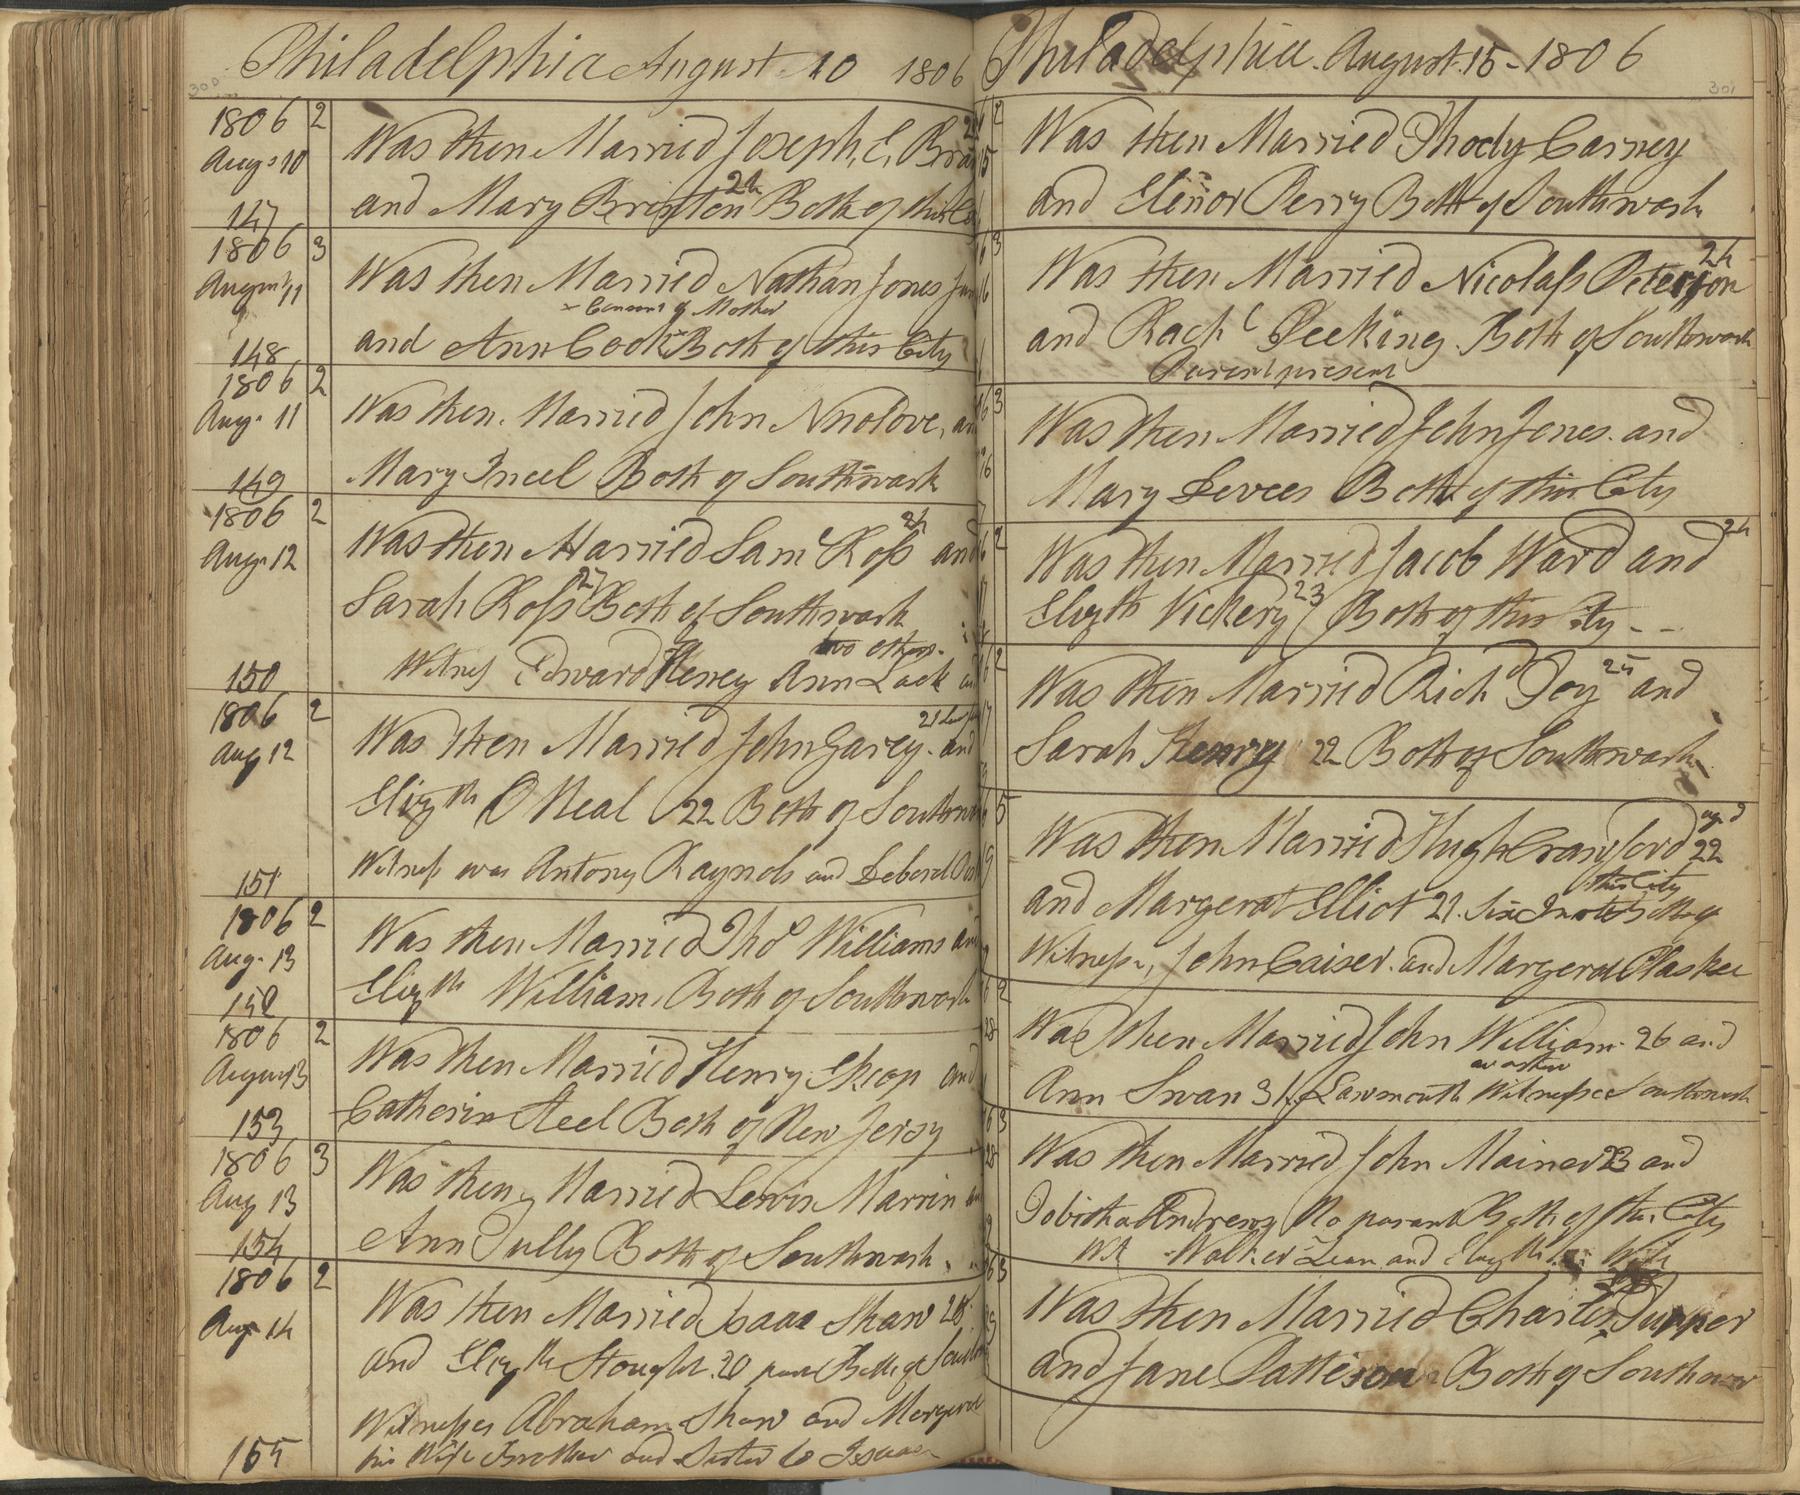 Philadelphia August 10 1806
300
1806 2
Augs 10
147
Was then Married Joseph, E,
and Mary Brinton 24 Both of this
1806 3
August 11
148
Was then Married Nathan Jones
- Consent of Mother
and Ann Cook - Both of this City
1806 2
Aug. 11
149
Was then. Married John
Mary Both of Southwark
1806 2
Aug. 12
150
Was then Married Saml Ross 24 and
Sarah Ross 27 Both of Southwark
two others.
Witness Edward Henry Ann Lock
1806 2
Aug 12
151
Was then Married John Garey. 21 and
Elizth O Neal 22 Both of
Witness was Antony Raynols and
1806 2
Aug. 13
152
Was then Married Tho Williams
Elizth William, Both of Southwark
1806 2
August 13
153
Was then Married Henry and
Catherin Steel Both of New Jersy
1806 3
Aug 13
154
Was then Married Lewis Marrin
Ann Tully Both of Southwark
1806 2
Aug 14
155
Was then Married Isaac Shaw 28
and Elizth Stought. 20 Both of
Witnesses Abraham Shaw and
his Wife Brother and Sister to Isaac
Philadelphia. August. 15 - 1806
301
2
15
Was then Married Thody Carney
and Elenor Perry Both of Southwark
3
16
Was then Married Nicolass Peterson 24
and Rachl Peeking. Both of Southwark
Parent present
3
16
Was then Married John Jones. and
Mary Devees Both of this City
2
Was then Married Jacob Ward and 24
Elizth Vickery 23 Both of this City - -
2
17
Was then Married Richd Joy 25 and
Sarah Henry 22 Both of Southwark
5
19
Was then Married Hugh Crawford aged 22
this City
and Margerat Elliot 21. Both of
Witnesse, John Caiser. and Margerat
2
28
Was then Married John William. 26 and
Ann Swan 31. Witnesse Southwark
3
28
Was then Married John Mainer 23 and
No parant Both of this City
Wit - Walker and Elizth Wife
3
29
Was then Married Charles Supper
and Jane Patterson Both of